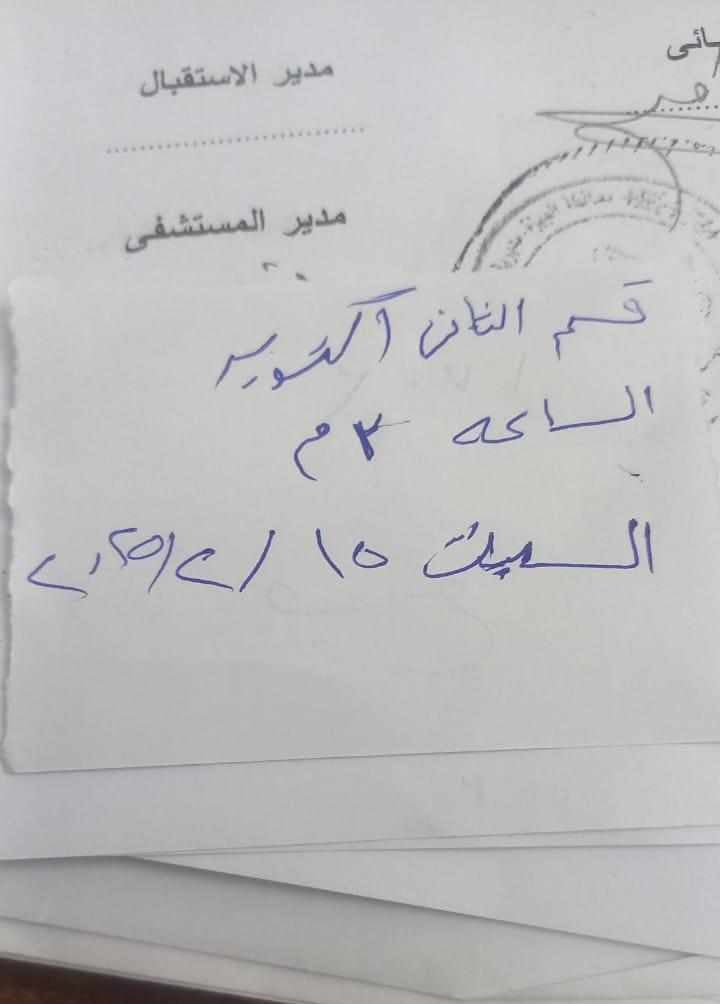 ـائى
مدير الاستقبال
مدير المستشفى
قسم الثانى أكتوبر
الساعه ٣ م
السبت ١٥ / ٢ / ٢٠٢٥